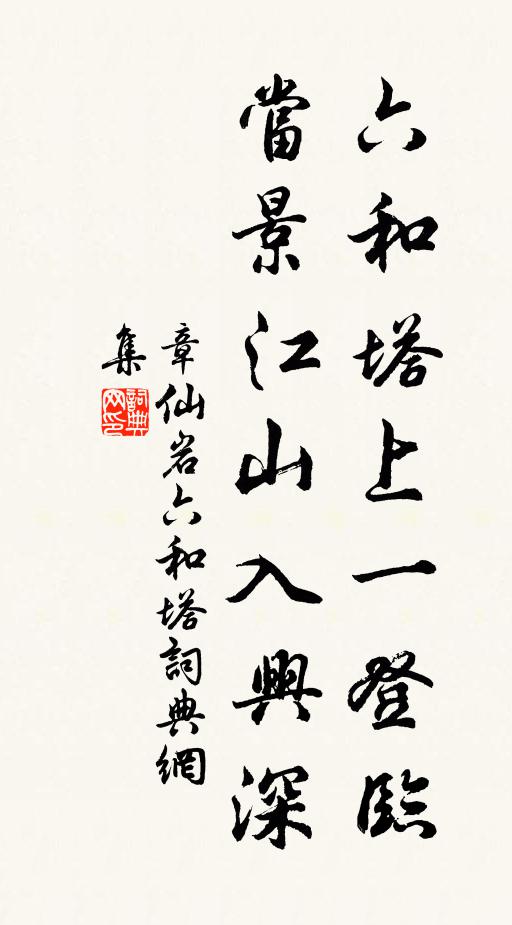 六和塔上一登臨
當景江山入興深
章仙岩六和塔詞典網
集
詞典
网印